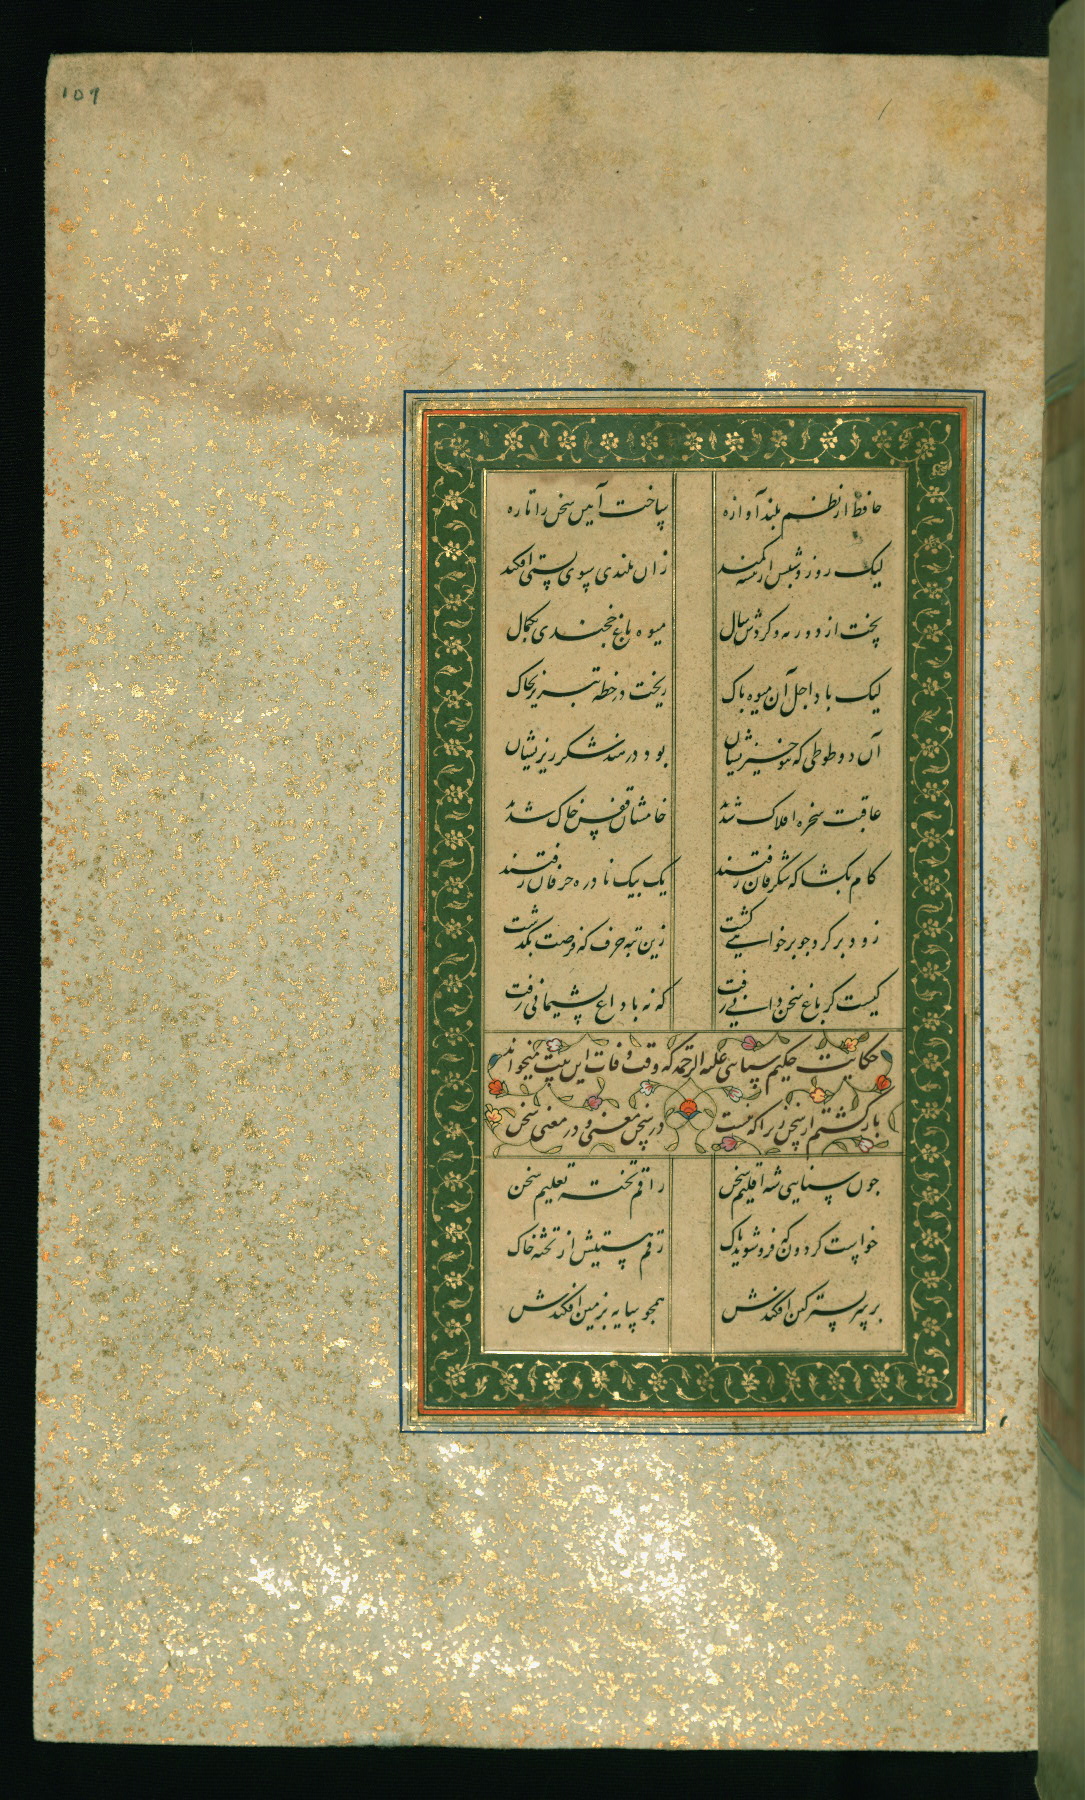 ١٥٩
حافظ از نظم بلند آوازه ساخت آیین سخن را تازه
لیک روز و شبش از کمند زان بلندی بسوی پستی افکند
پخت از دور مه و گردش سال میوه باغ خجندی بکمال
لیک باد اجل آن میوه پاک ریخت در خطه تبریز بخاک
آن دو طوطی که بنوخیزیشان بود در هند شکر ریزیشان
عاقبت سخره افلاک شدند خامشان قفس خاک شدند
کام بگشا که شگرفان رفتند یک بیک نادره حرفان رفتند
زود برگرد چو برخواهی گشت زین تبه حرف که فرصت بگذشت
کیست کز باغ سخن دانی رفت که نه با داغ پشیمانی رفت
حکایت حکیم سنایی علیه الرحمه که وقت وفات این بیت میخواند
باز گشتم از سخن زیرا که نیست در سخن معنی و در معنی سخن
چون سنایی شه اقلیم سخن راقم تخته تعلیم سخن
خواست گردون که فرو شوید پاک رقم هستیش از تخته خاک
بر سر بستر کین افکندش همچو سایه بزمین افکندش